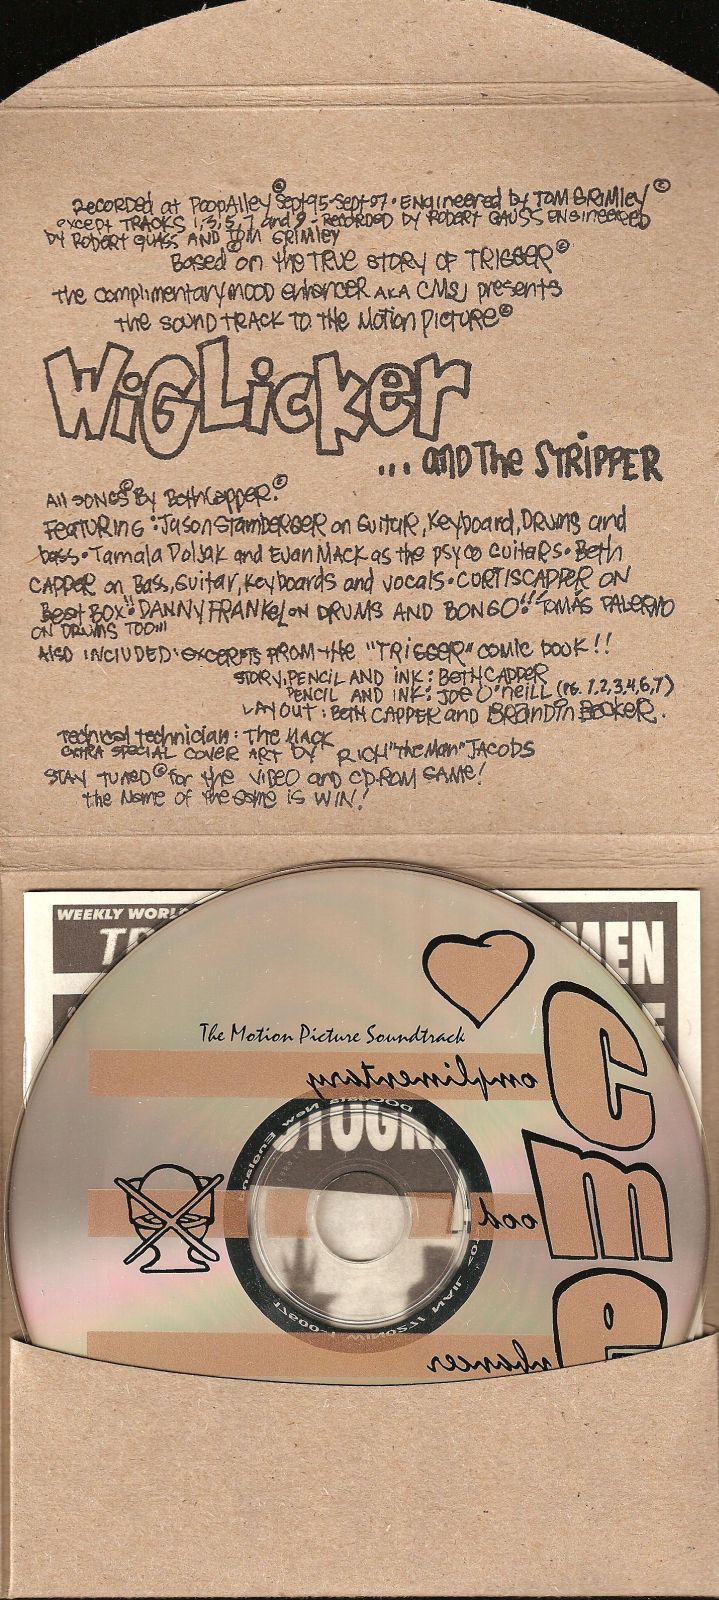 RECORDED at PoopAlley© Sept95-Sept97 • ENgiNeered by TOM GRiMley©
except TRACKS 1,3,5,7 and 9 - RECORDED BY RObERT GAUSS ENGINEERED
by RobeRt GUASS AND TOM GRIMLEY
BaseD on the TRUE STORY OF TRIGGER©
the complimentary mood enhancer AKA CMS) presents
the SOUND TRACK TO THE MOTION PICTURE©
WiGLicker
... and The STRiPPER
All SONGS© By BethCapper.©
FEATURING : Jason Stamberger on Guitar, Keyboard, Drums and
bass • Tamala Poljak and Evan Mack as the psyco Guitars • Beth
CAPPER on Bass, Guitar, Keyboards and vocals • CURTIS CAPPER ON
Beat BOX!! DANNY FRANKEL ON DRUMS AND BONGO!!! TOMÁS PALERMO
ON DRUMS TOO!!!
Also INCLUDED: excerpts FROM the "TRIGGER" comic book!!
STORY, PENCIL AND INK: BETH CAPPER
PENCIL AND INK: JOE O'NEILL (PG. 1,2,3,4,6,7)
LAYOUT: BETH CAPPER and BRANDIN BECKER.
Technical technician: The MACK
EXTRA SPECIAL COVER ART BY RICH "the Man" JACOBS
STAY TUNED© for the VIDEO and CD-ROM GAME!
the Name of the Game is WIN!
WEEKLY WORL
MEN
The Motion Picture Soundtrack
C omplimentary
m ood
e nhancer
OTOGR